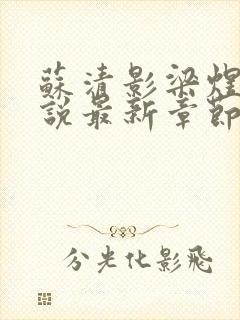 蘇清影梁煜
說最新章節
分光化影飛